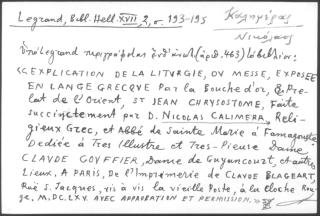 Legrand, Bibl. Hell. XVII, 2, σ. 193-195
Καλημέρας
Νικόλαος
Ὑπὸ Legrand περιγράφεται ὑπ' ἀριθ. 463) τὸ βιβλίον:
«EXPLICATION DE LA LITURGIE, OU MESSE, EXPOSEE
EN LANGE GRECQUE Par la Bouche d'or, & Pre-
lat de l'Orient, ST JEAN CHRYSOSTOME, Faite
succinctement par D. NICOLAS CALIMERA, Reli-
gieux Grec, et Abbé de Sainte Marie à Famagouste
Dediée à Tres Illustre et Tres-Pieuse Dame
CLAUDE GOVFFIER, Dame de Guyancourt, et autres
Lieux. A PARIS, De l'Imprimerie de CLAUDE BLAGEART,
Ruë S. Jacques, vis à vis la vieille Poste, à la Cloche Rou-
ge, M.DC.LXV. AVEC APPROBATION ET PERMISSION.»